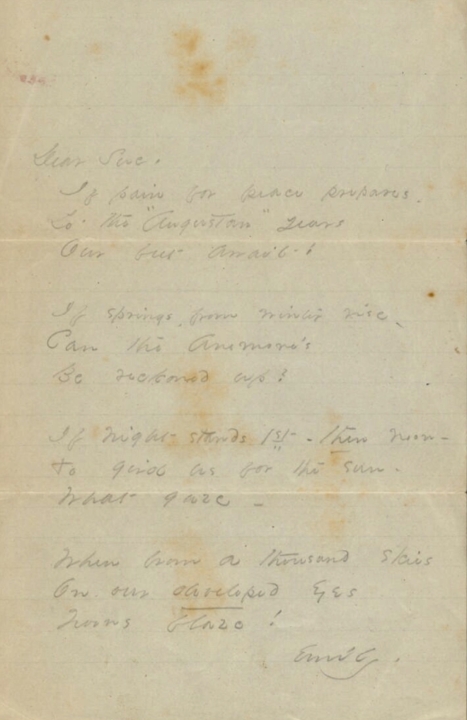 Dear Sue.
If pain for peace prepares
Lo. the "Augustan" years
Our feet await!
If springs from winter rise
Can the Anemone's
Be reckoned up?
If Night stands 1st - then noon -
To gird us for the sun -
What gaze -
When from a thousand skies
On our developed Eyes
Noons blaze!
Emily.